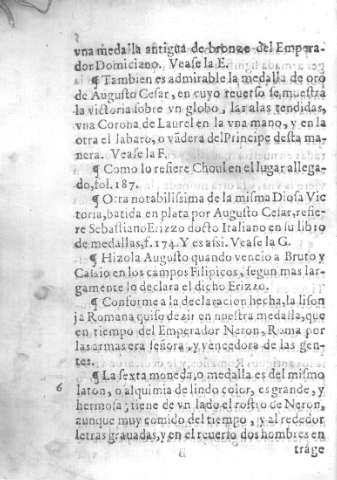 vna medalla antigua de bronze del Empera-
dor Domiciano. Vease la E.
¶ Tambien es admirable la medalla de oro
de Augusto Cesar, en cuyo reuerso se muestra
la victoria sobre vn globo, las alas tendidas,
vna Corona de Laurel en la vna mano, y en la
otra el labaro, o vādera del Principe desta ma-
nera. Vease la F.
¶ Como lo refiere Choul en el lugar allega-
do, fol. 187.
¶ Otra notabilissima de la misma Diosa Vic
toria, batida en plata por Augusto Cesar, refie-
re Sebastiano Erizzo docto Italiano en su libro
de medallas, f. 174. Y es assi. Vease la G.
¶ Hizola Augusto quando vencio a Bruto y
Cassio en los campos Filipicos, segun mas lar-
gamente lo declara el dicho Erizzo.
¶ Conforme a la declaracion hecha, la lison
ja Romana quiso dezir en nuestra medalla, que
en tiempo del Emperador Neron, Roma por
las armas era señora, y vencedora de las gen-
tes.
6 ¶ La sexta moneda, o medalla es del mismo
laton, o alquimia de lindo color, es grande, y
hermosa; tiene de vn lado el rostro de Neron,
aunque muy comido del tiempo, y al rededor
letras grauadas, y en el reuerso dos hombres en
trage